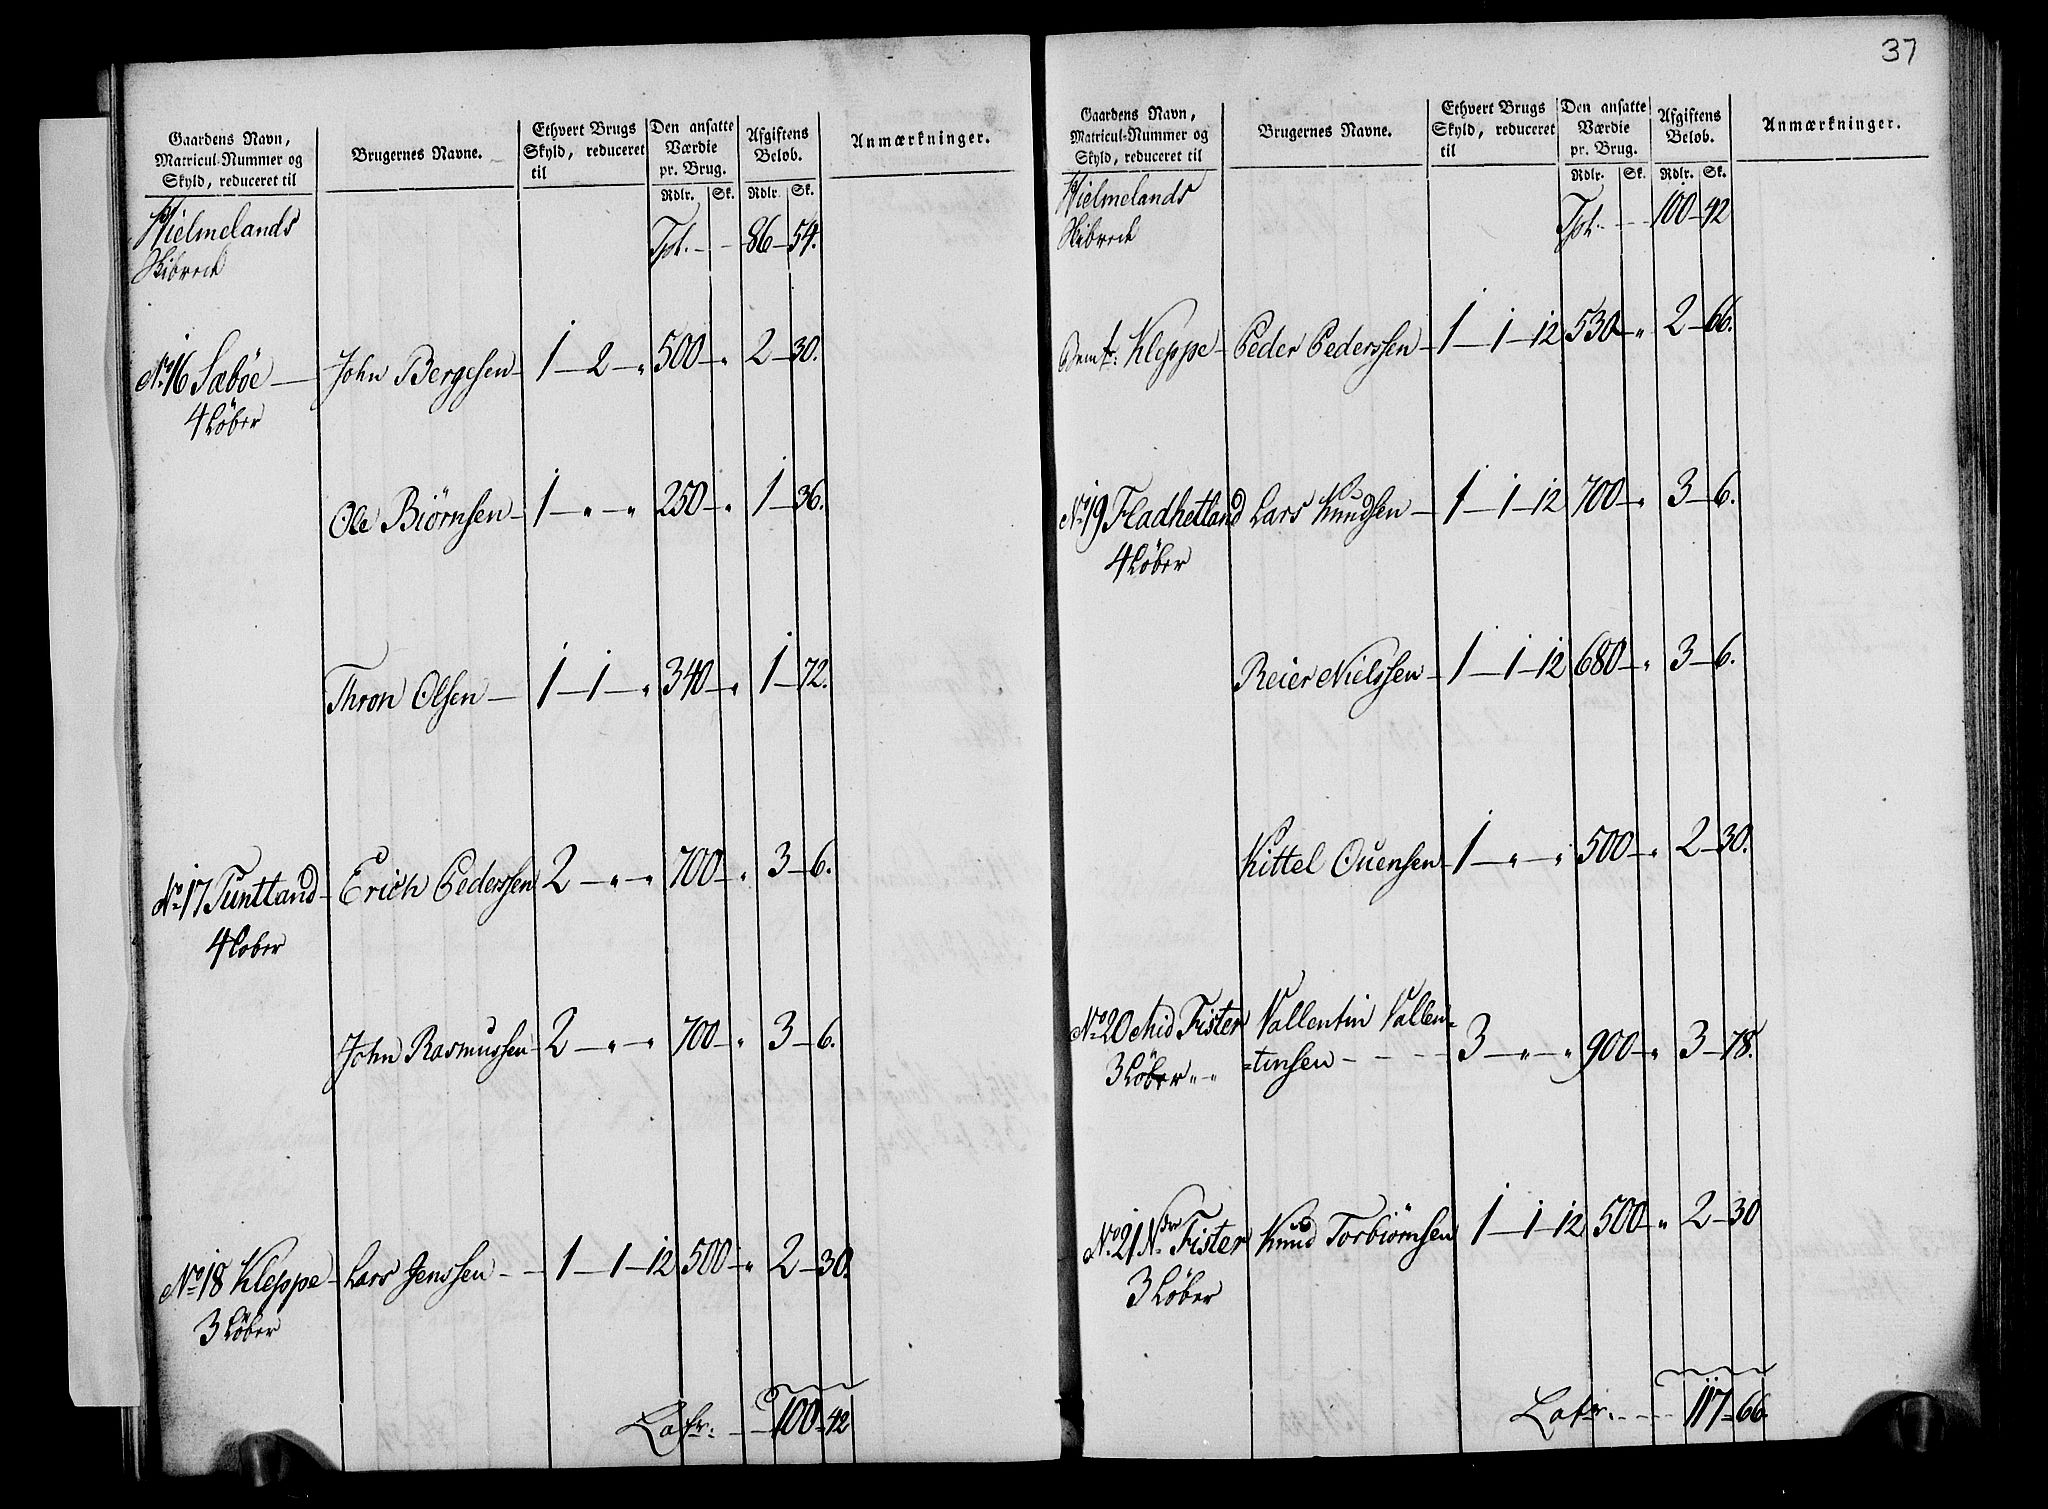 Gaardens Navn, Matricul-Nummer og Skyld, reduceret til | Brugernes Navne. | Ethvert Brugs Skyld, reduceret til | Den ansatte Værdie pr. Brug. | Afgiftens Beløb. | Anmærkninger.
Rdlr. | Sk. | Rdlr. | Sk.
Hielmelands
Skibrede
Tpt. - - 86 - 54.
No 16 Sæbøe — John Bergesen - 1 - 2 - " 500 - " 2 - 30.
4 Løber
Ole Biörnsen - 1 - " - " 250 - " 1 - 36.
Thron Olsen - 1 - 1 - " 340 - " 1 - 72.
No 17 Tuntland - Erich Pederssen 2 - " - " 700 - " 3 - 6.
4 Løber
John Rasmussen - 2 - " - " 700 - " 3 - 6.
No 18 Kleppe - Lars Jenssen - - 1 - 1 - 12 500 - " 2 - 30.
3 Løber
Latr: - - 100 - 42
37
Gaardens Navn, Matricul-Nummer og Skyld, reduceret til | Brugernes Navne. | Ethvert Brugs Skyld, reduceret til | Den ansatte Værdie pr. Brug. | Afgiftens Beløb. | Anmærkninger.
Rdlr. | Sk. | Rdlr. | Sk.
Hielmelands
Skibrede
Tpt. - - 100 - 42
Bemt: Kleppe - Peder Pederssen - 1 - 1 - 12 530 - " 2 - 66.
No 19 Fladhetland Lars Knudsen - 1 - 1 - 12 700 - " 3 - 6.
4 Løber
Reier Nielssen - 1 - 1 - 12 680 - " 3 - 6.
Kittel Ouensen - 1 - " - " 500 - " 2 - 30.
No 20 Mid Fister Vallentin Vallen=
3 Løber " " =tinsen - - - 3 - " - " 900 - " 3 - 78.
No 21 Ndr Fister Knud Torbiörnsen 1 - 1 - 12 500 - " 2 - 30
3 Løber
Latr. - - - 117 - 66.